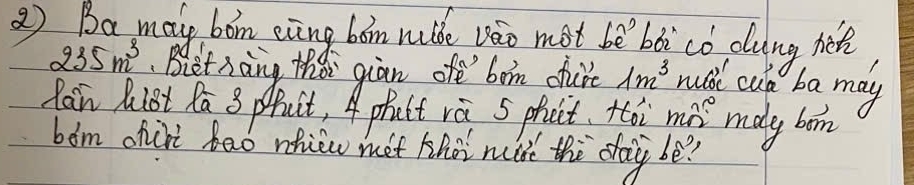 2) Ba máy bơm cùng bơm nước vào một bể bơi có dung tích
235m³. Biết rằng thời gian để bơm được 1m³ nước của ba máy
lần lượt là 3 phút, 4 phút và 5 phút. Hỏi mỗi máy bơm
bơm được bao nhiêu mét khối nước thì đầy bể?